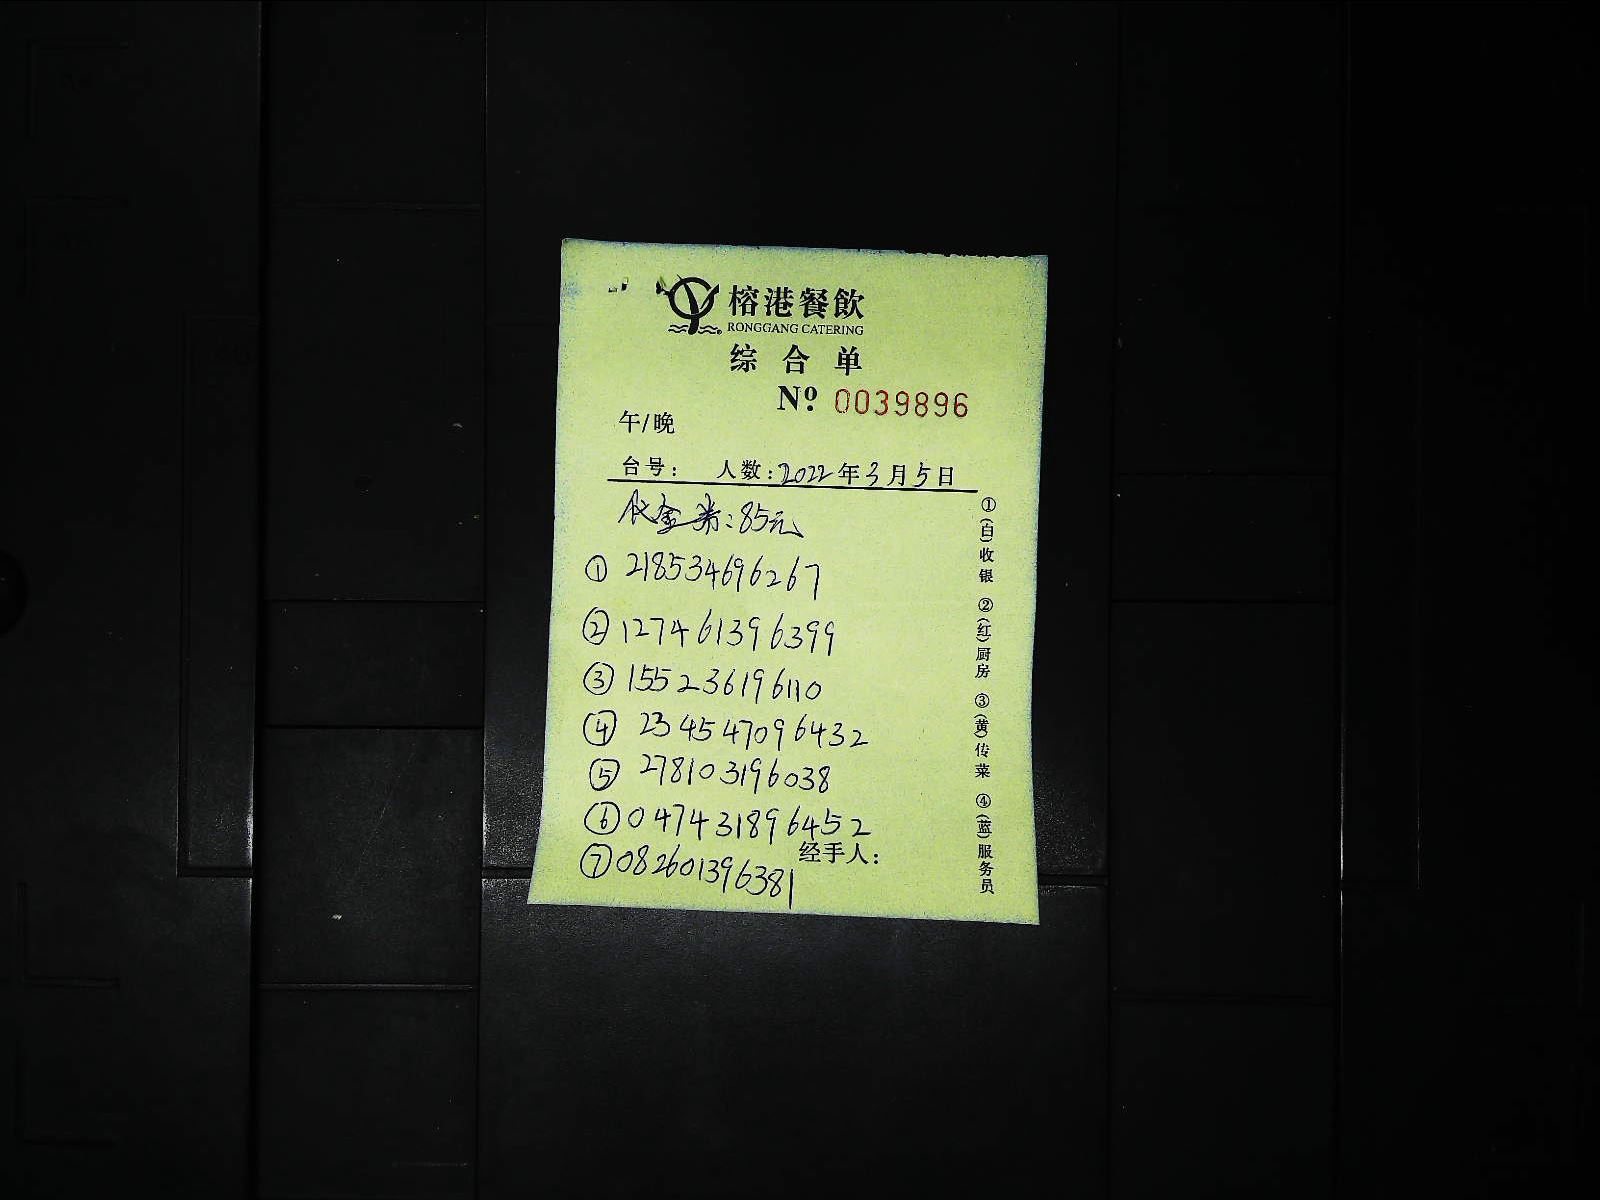 榕港餐飲
RONGGANG CATERING
综合单
Nº 0039896
午/晚
台号： 人数：2022年3月5日
代金券：85元
① 218534696267
② 127461396399
③ 155236196110
④ 234547096432
⑤ 278103196038
⑥ 047431896452
经手人：
⑦ 082601396381
①(白)收银 ②(红)厨房 ③(黄)传菜 ④(蓝)服务员